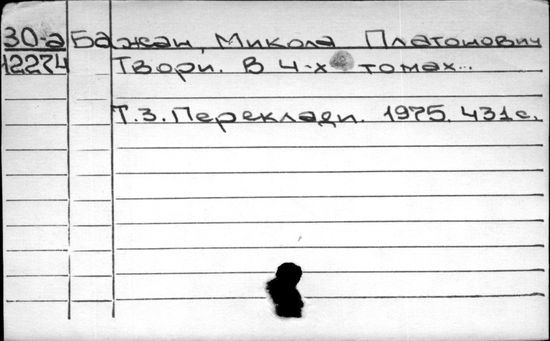 30-а Бажан, Микола Платонович
12274 Твори. В 4-х томах...
Т.3. Переклади. 1975. 431с.